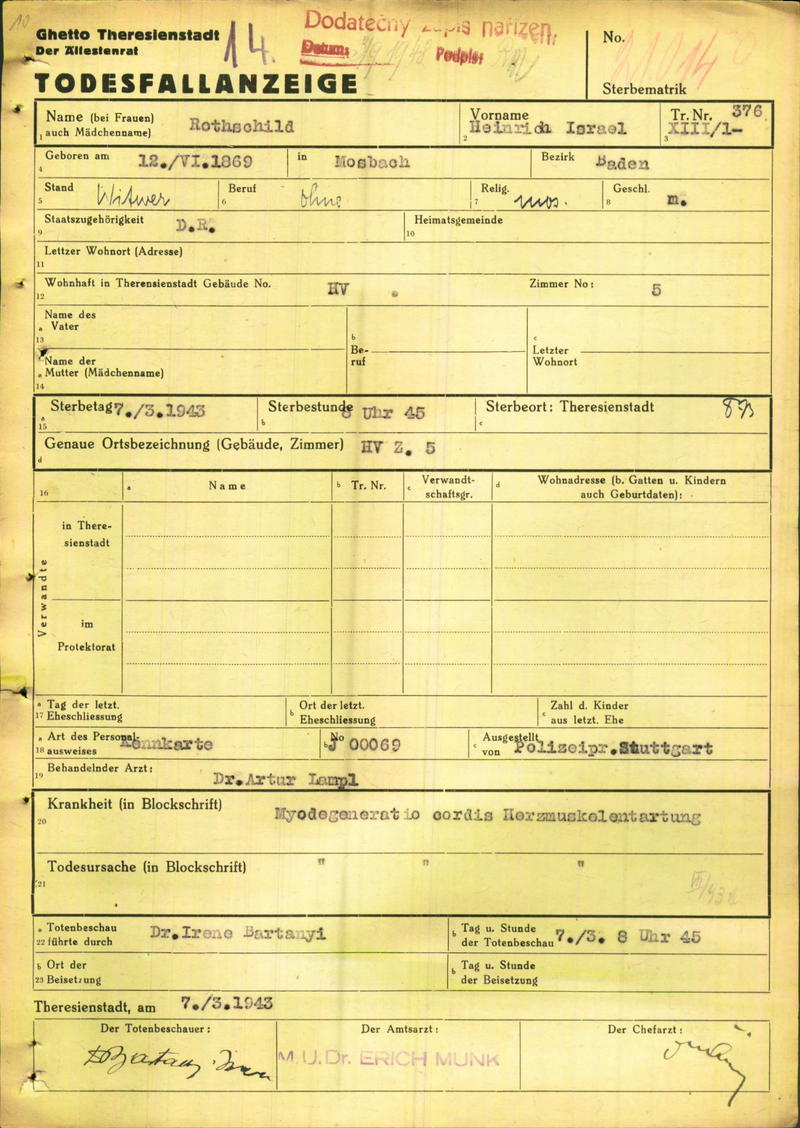 Ghetto Theresienstadt
Der Ältestenrat
14.
Dodatečný zápis nařízen.
Datum:
Podpis:
No.
Sterbematrik
TODESFALLANZEIGE
Name (bei Frauen) auch Mädchenname) Rothschild
1
Vorname Heinrich Israel
2
Tr. Nr. 376 XIII/1-
3
Geboren am 12./VI.1869 in Mosbach Bezirk Baden
4
Stand Witwer Beruf ohne Relig. Geschl. m.
5 6 7 8
Staatszugehörigkeit D.R. Heimatsgemeinde
9 10
Lettzer Wohnort (Adresse)
11
Wohnhaft in Theresienstadt Gebäude No. HV . Zimmer No: 5
12
Name des
a Vater
13
b Be-ruf
c Letzter Wohnort
Name der
a Mutter (Mädchenname)
14
Sterbetag 7./3.1943 Sterbestunde 8 Uhr 45 Sterbeort: Theresienstadt
a 15 b c
Genaue Ortsbezeichnung (Gebäude, Zimmer) HV Z. 5
d
16 a Name b Tr. Nr. c Verwandt-schaftsgr. d Wohnadresse (b. Gatten u. Kindern auch Geburtdaten):
Verwandte
in There-
sienstadt
im
Protektorat
a Tag der letzt. b Ort der letzt. c Zahl d. Kinder
17 Eheschliessung Eheschliessung aus letzt. Ehe
a Art des Personal- Kennkarte b No 00069 c Ausgestellt von Polizeipr.Stuttgart
18 ausweises
Behandelnder Arzt: Dr.Artur Lampl
19
Krankheit (in Blockschrift) Myodegeneratio cordis Herzmuskelentartung
20
Todesursache (in Blockschrift) " " "
21
a Totenbeschau Dr.Irene Bartanyi b Tag u. Stunde 7./3. 8 Uhr 45
22 führte durch der Totenbeschau
b Ort der b Tag u. Stunde
23 Beisetzung der Beisetzung
Theresienstadt, am 7./3.1943
Der Totenbeschauer: Der Amtsarzt: Der Chefarzt:
M.U.Dr. ERICH MUNK